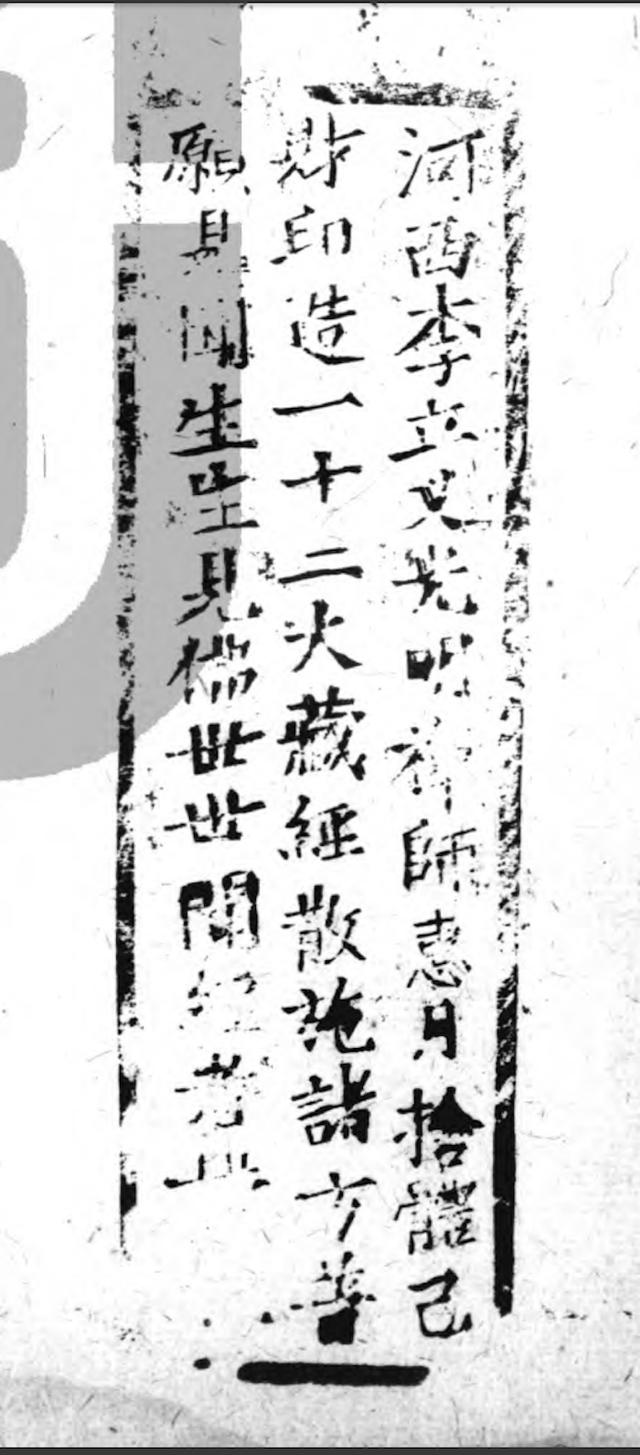 河西李立义光明禅師惠月捨體己
財印造一十二大藏經散施諸方普
願見聞生生見佛世世聞經者此